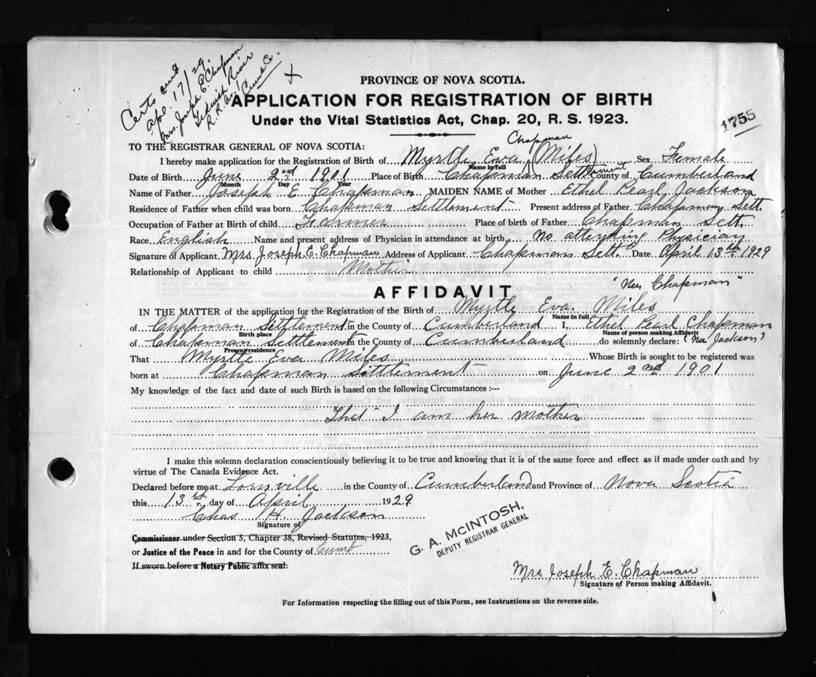 Certs sent
Apr. 17/29.
Mrs. Joseph E. Chapman
River
R.R. Cumb. Co.
X
PROVINCE OF NOVA SCOTIA.
APPLICATION FOR REGISTRATION OF BIRTH
Under the Vital Statistics Act, Chap. 20, R. S. 1923.
1755
TO THE REGISTRAR GENERAL OF NOVA SCOTIA:
Chapman
I hereby make application for the Registration of Birth of Myrtle Eva (Miles) Sex Female
Name in full
Date of Birth June 2nd 1901 Place of Birth Chapman Settlement County of Cumberland
Month Day Year
Name of Father Joseph E Chapman MAIDEN NAME of Mother Ethel Pearl Jackson
Residence of Father when child was born Chapman Settlement Present address of Father Chapman Sett.
Occupation of Father at Birth of child Farmer Place of birth of Father Chapman Sett.
Race English Name and present address of Physician in attendance at birth No attending Physician
Signature of Applicant Mrs Joseph E. Chapman Address of Applicant Chapman Sett. Date April 13th 1929
Relationship of Applicant to child Mother
AFFIDAVIT
"Nee Chapman"
IN THE MATTER of the application for the Registration of the Birth of Myrtle Eva Miles
Name in full
of Chapman Settlement in the County of Cumberland I, Ethel Pearl Chapman
Birth place Name of person making Affidavit
of Chapman Settlement in the County of Cumberland do solemnly declare: (Nee Jackson)
Present residence
That Myrtle Eva Miles Whose Birth is sought to be registered was
born at Chapman Settlement on June 2nd 1901
My knowledge of the fact and date of such Birth is based on the following Circumstances :—
That I am her mother
I make this solemn declaration conscientiously believing it to be true and knowing that it is of the same force and effect as if made under oath and by
virtue of The Canada Evidence Act.
Declared before me at in the County of Cumberland and Province of Nova Scotia
this 13th day of April 1929
Chas H. Jackson
Signature of
G. A. McINTOSH,
DEPUTY REGISTRAR GENERAL
Commissioner under Section 5, Chapter 38, Revised Statutes, 1923,
or Justice of the Peace in and for the County of Cumb
If sworn before a Notary Public affix seal.
Mrs Joseph E. Chapman
Signature of Person making Affidavit.
For Information respecting the filling out of this Form, see Instructions on the reverse side.